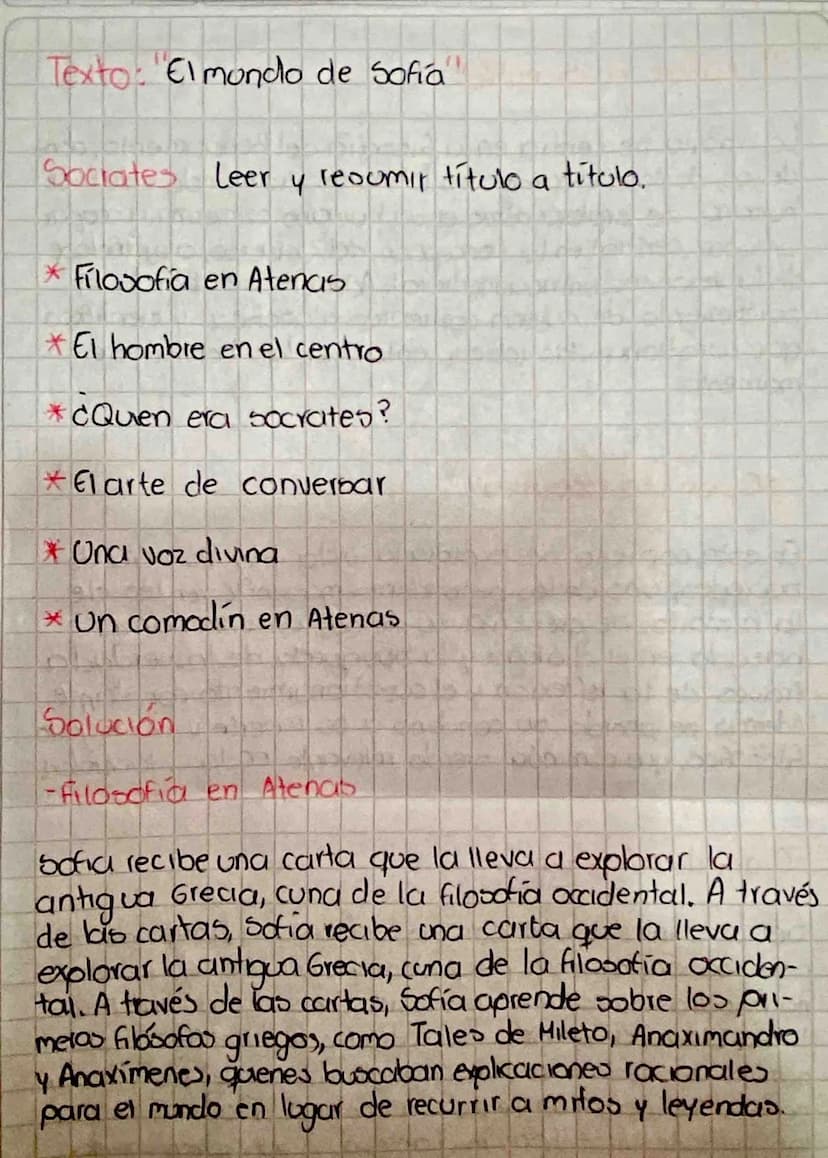 Texto: "El mundo de Sofía"
Socrates Leer y resumir título a título.
* Filosofía en Atenas
* El hombre en el centro
* ¿Quen era socrates?
* El arte de conversar
* Una voz divina
* Un comodín en Atenas
Solución
- Filosofía en Atenas
Sofia recibe una carta que la lleva a explorar la
antigua Grecia, cuna de la filosofía occidental. A través
de las cartas, Sofía recibe una carta que la lleva a
explorar la antigua Grecia, cuna de la filosofía occiden-
tal. A través de las cartas, Sofía aprende sobre los pri-
meros filósofos griegos, como Tales de Mileto, Anaximandro
y Anaxímenes, quienes buscaban explicaciones racionales
para el mundo en lugar de recurrir a mitos y leyendas.